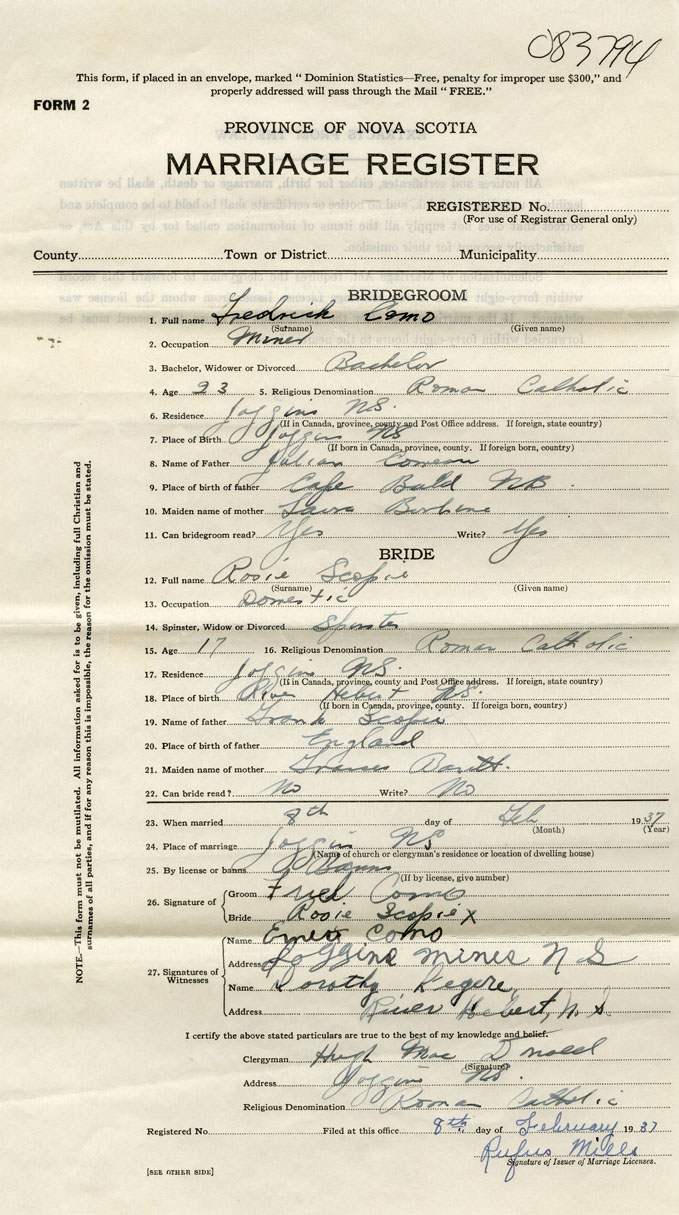 083794
This form, if placed in an envelope, marked “ Dominion Statistics—Free, penalty for improper use $300,” and
properly addressed will pass through the Mail “ FREE.”
FORM 2
PROVINCE OF NOVA SCOTIA
MARRIAGE REGISTER
REGISTERED No.
(For use of Registrar General only)
County Town or District Municipality
BRIDEGROOM
1. Full name Fredrick Como
(Surname) (Given name)
2. Occupation Miner
3. Bachelor, Widower or Divorced Bachelor
4. Age 23 5. Religious Denomination Roman Catholic
6. Residence Joggins NS.
(If in Canada, province, county and Post Office address. If foreign, state country)
7. Place of Birth Joggins NS
(If born in Canada, province, county. If foreign born, country)
8. Name of Father Julian Comeau
9. Place of birth of father Cape Bald NB.
10. Maiden name of mother Laura
11. Can bridegroom read? Yes Write? Yes
BRIDE
12. Full name Rosie Scopie
(Surname) (Given name)
13. Occupation Domestic
14. Spinster, Widow or Divorced Spinster
15. Age 17 16. Religious Denomination Roman Catholic
17. Residence Joggins NS.
(If in Canada, province, county and Post Office address. If foreign, state country)
18. Place of birth River Hebert NS.
(If born in Canada, province, county. If foreign born, country)
19. Name of father Frank Scopie
20. Place of birth of father England
21. Maiden name of mother Frances
22. Can bride read? No Write? No
23. When married 8th day of Feb 1937
(Month) (Year)
24. Place of marriage Joggins NS
(Name of church or clergyman's residence or location of dwelling house)
25. By license or banns Banns
(If by license, give number)
26. Signature of
Groom Fred Como
Bride Rosie Scopie X
27. Signatures of Witnesses
Name Como
Address Joggins mines N S
Name Dorothy Legere,
Address River Hebert, N. S.
I certify the above stated particulars are true to the best of my knowledge and belief.
Clergyman Hugh Mac Donald
(Signature)
Address Joggins NS.
Religious Denomination Roman Catholic
Registered No. Filed at this office 8th day of February 1937
Rufus Mills
Signature of Issuer of Marriage Licenses.
[SEE OTHER SIDE]
NOTE.—This form must not be mutilated. All information asked for is to be given, including full Christian and
surnames of all parties, and if for any reason this is impossible, the reason for the omission must be stated.